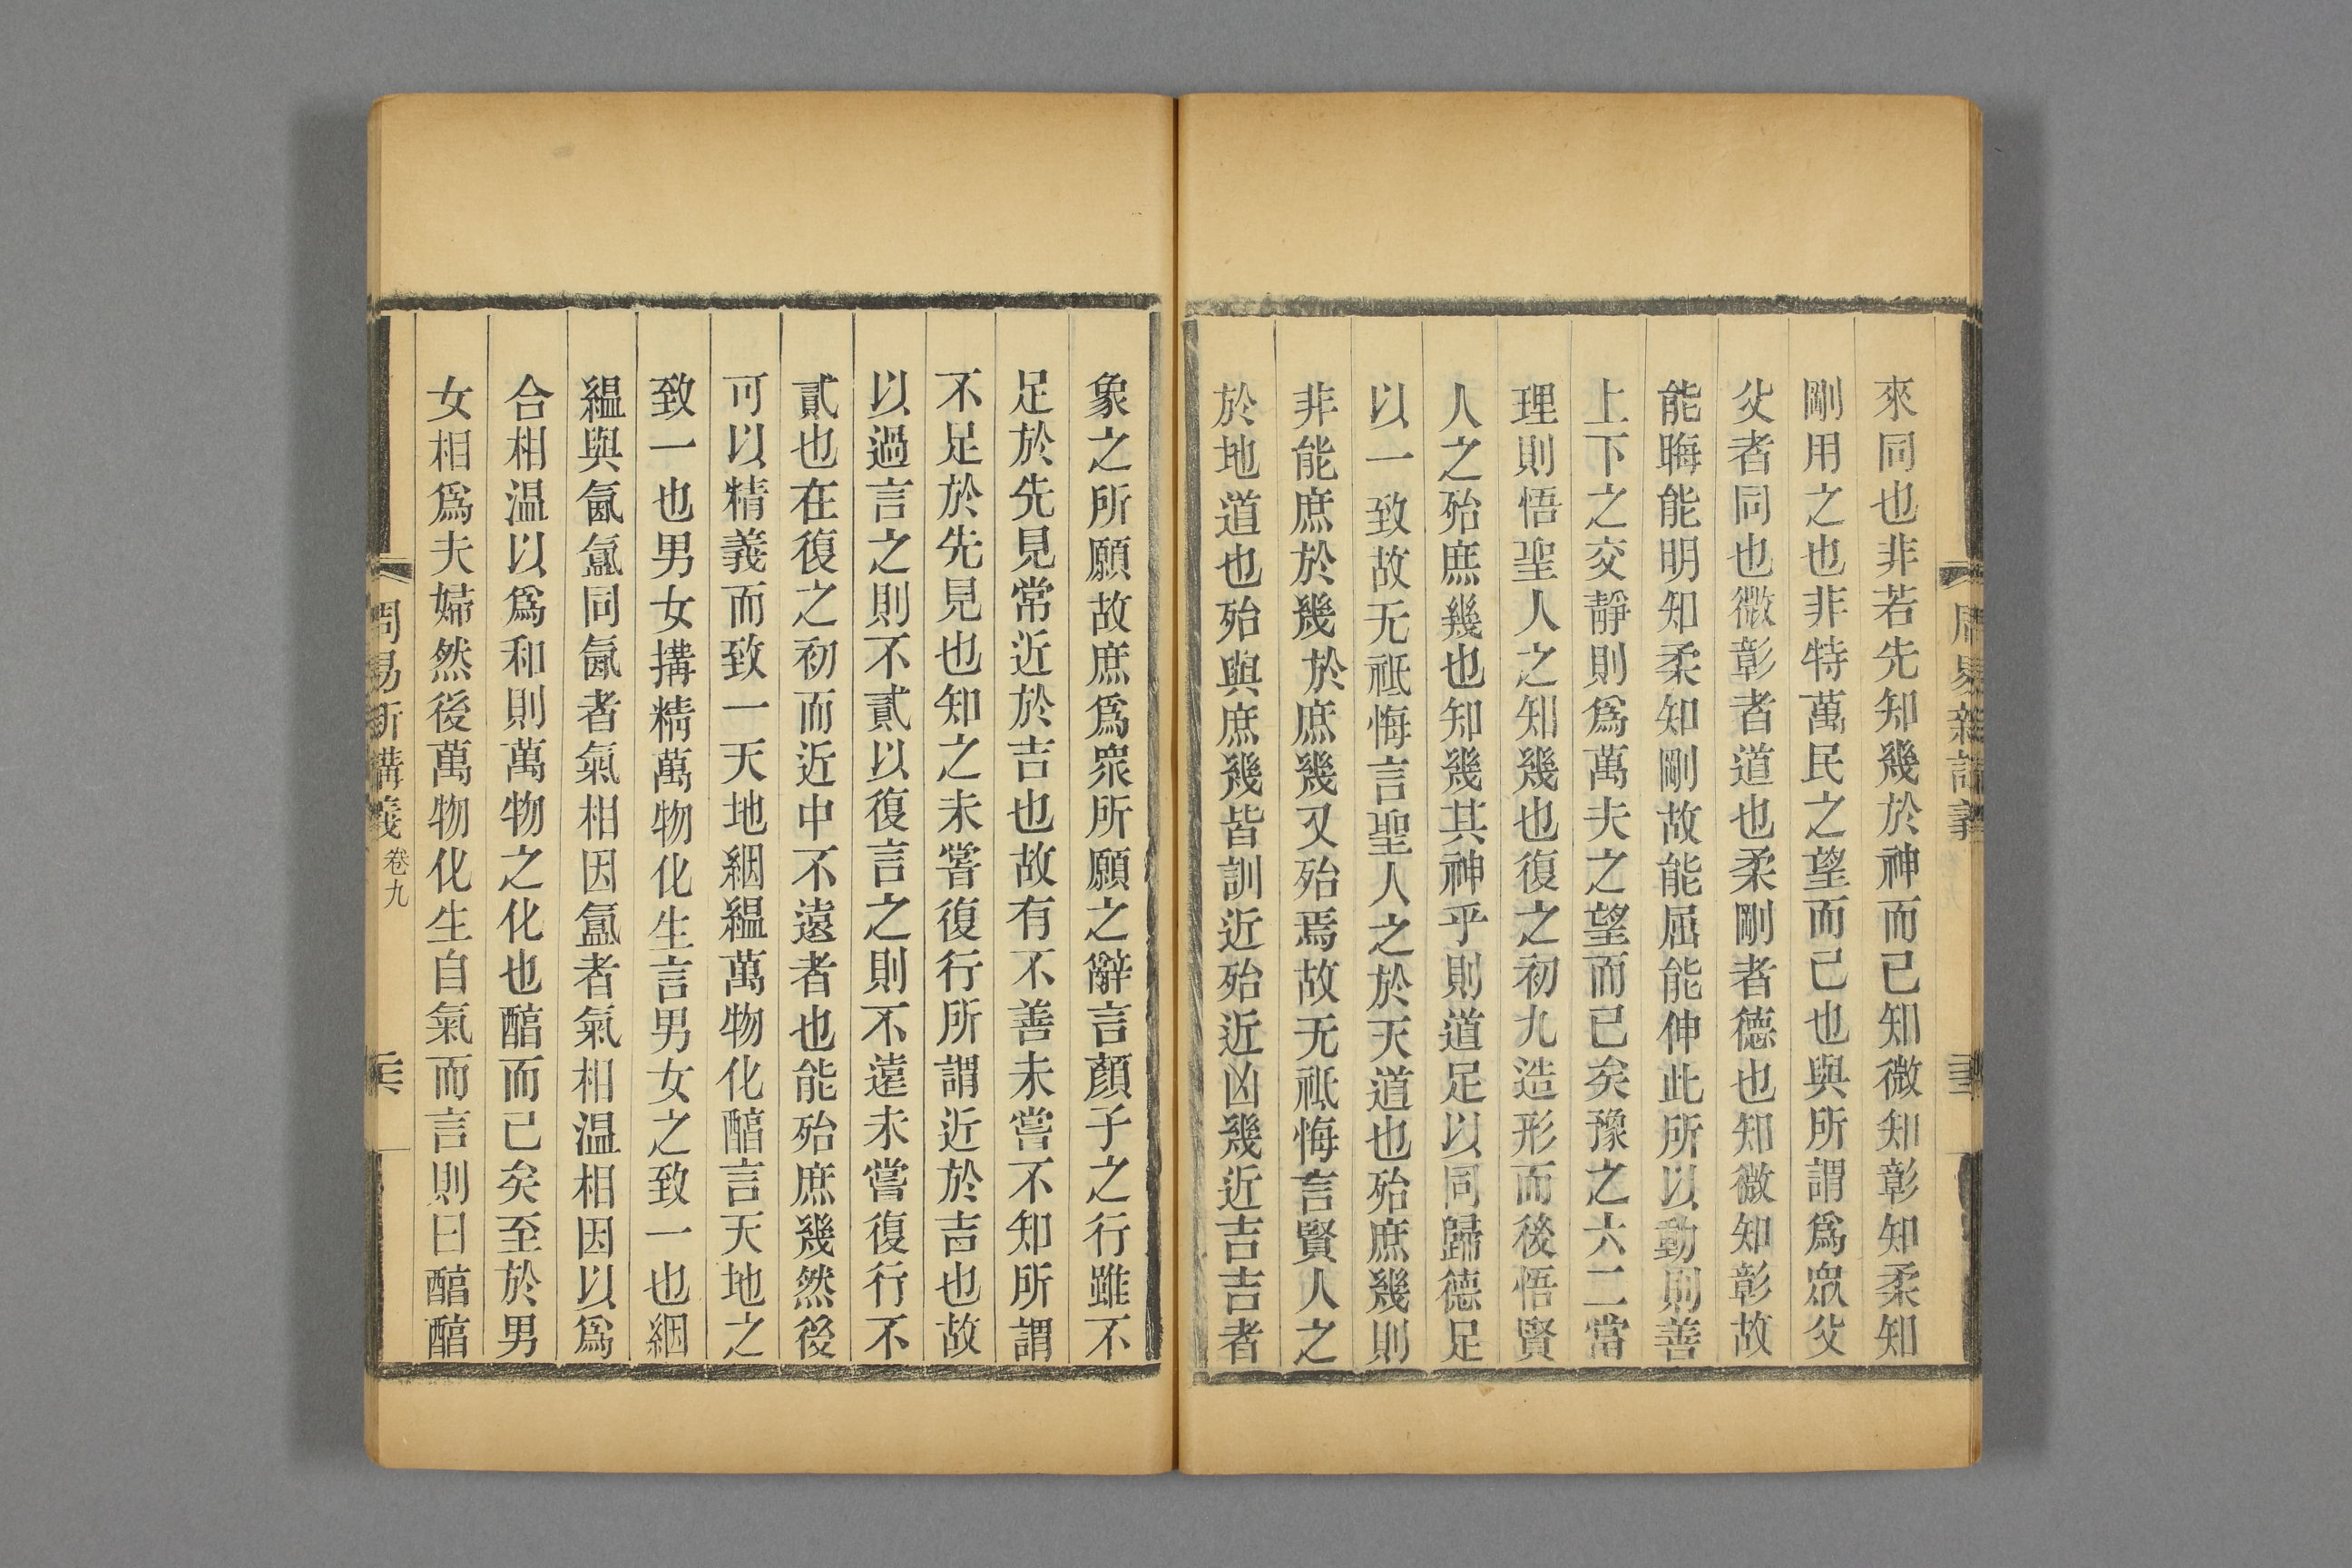 來同也非若先知幾於神而已知微知彰知柔知
剛用之也非特萬民之望而已也與所謂爲衆父
父者同也微彰者道也柔剛者德也知微知彰故
能晦能明知柔知剛故能屈能伸此所以動則善
上下之交靜則爲萬夫之望而已矣豫之六二當
理則悟聖人之知幾也復之初九造形而後悟賢
人之殆庶幾也知幾其神乎則道足以同歸德足
以一致故无祗悔言聖人之於天道也殆庶幾則
非能庶於幾於庶幾又殆焉故无祗悔言賢人之
於地道也殆與庶幾皆訓近殆近凶幾近吉吉者
象之所願故庶爲衆所願之辭言顏子之行雖不
足於先見常近於吉也故有不善未嘗不知所謂
不足於先見也知之未嘗復行所謂近於吉也故
以過言之則不貳以復言之則不遠未嘗復行不
貳也在復之初而近中不遠者也能殆庶幾然後
可以精義而致一天地絪縕萬物化醕言天地之
致一也男女搆精萬物化生言男女之致一也絪
縕與氤氳同氤者氣相因氳者氣相溫相因以爲
合相溫以爲和則萬物之化也醕而已矣至於男
女相爲夫婦然後萬物化生自氣而言則曰醕醕
周易新講義 卷九